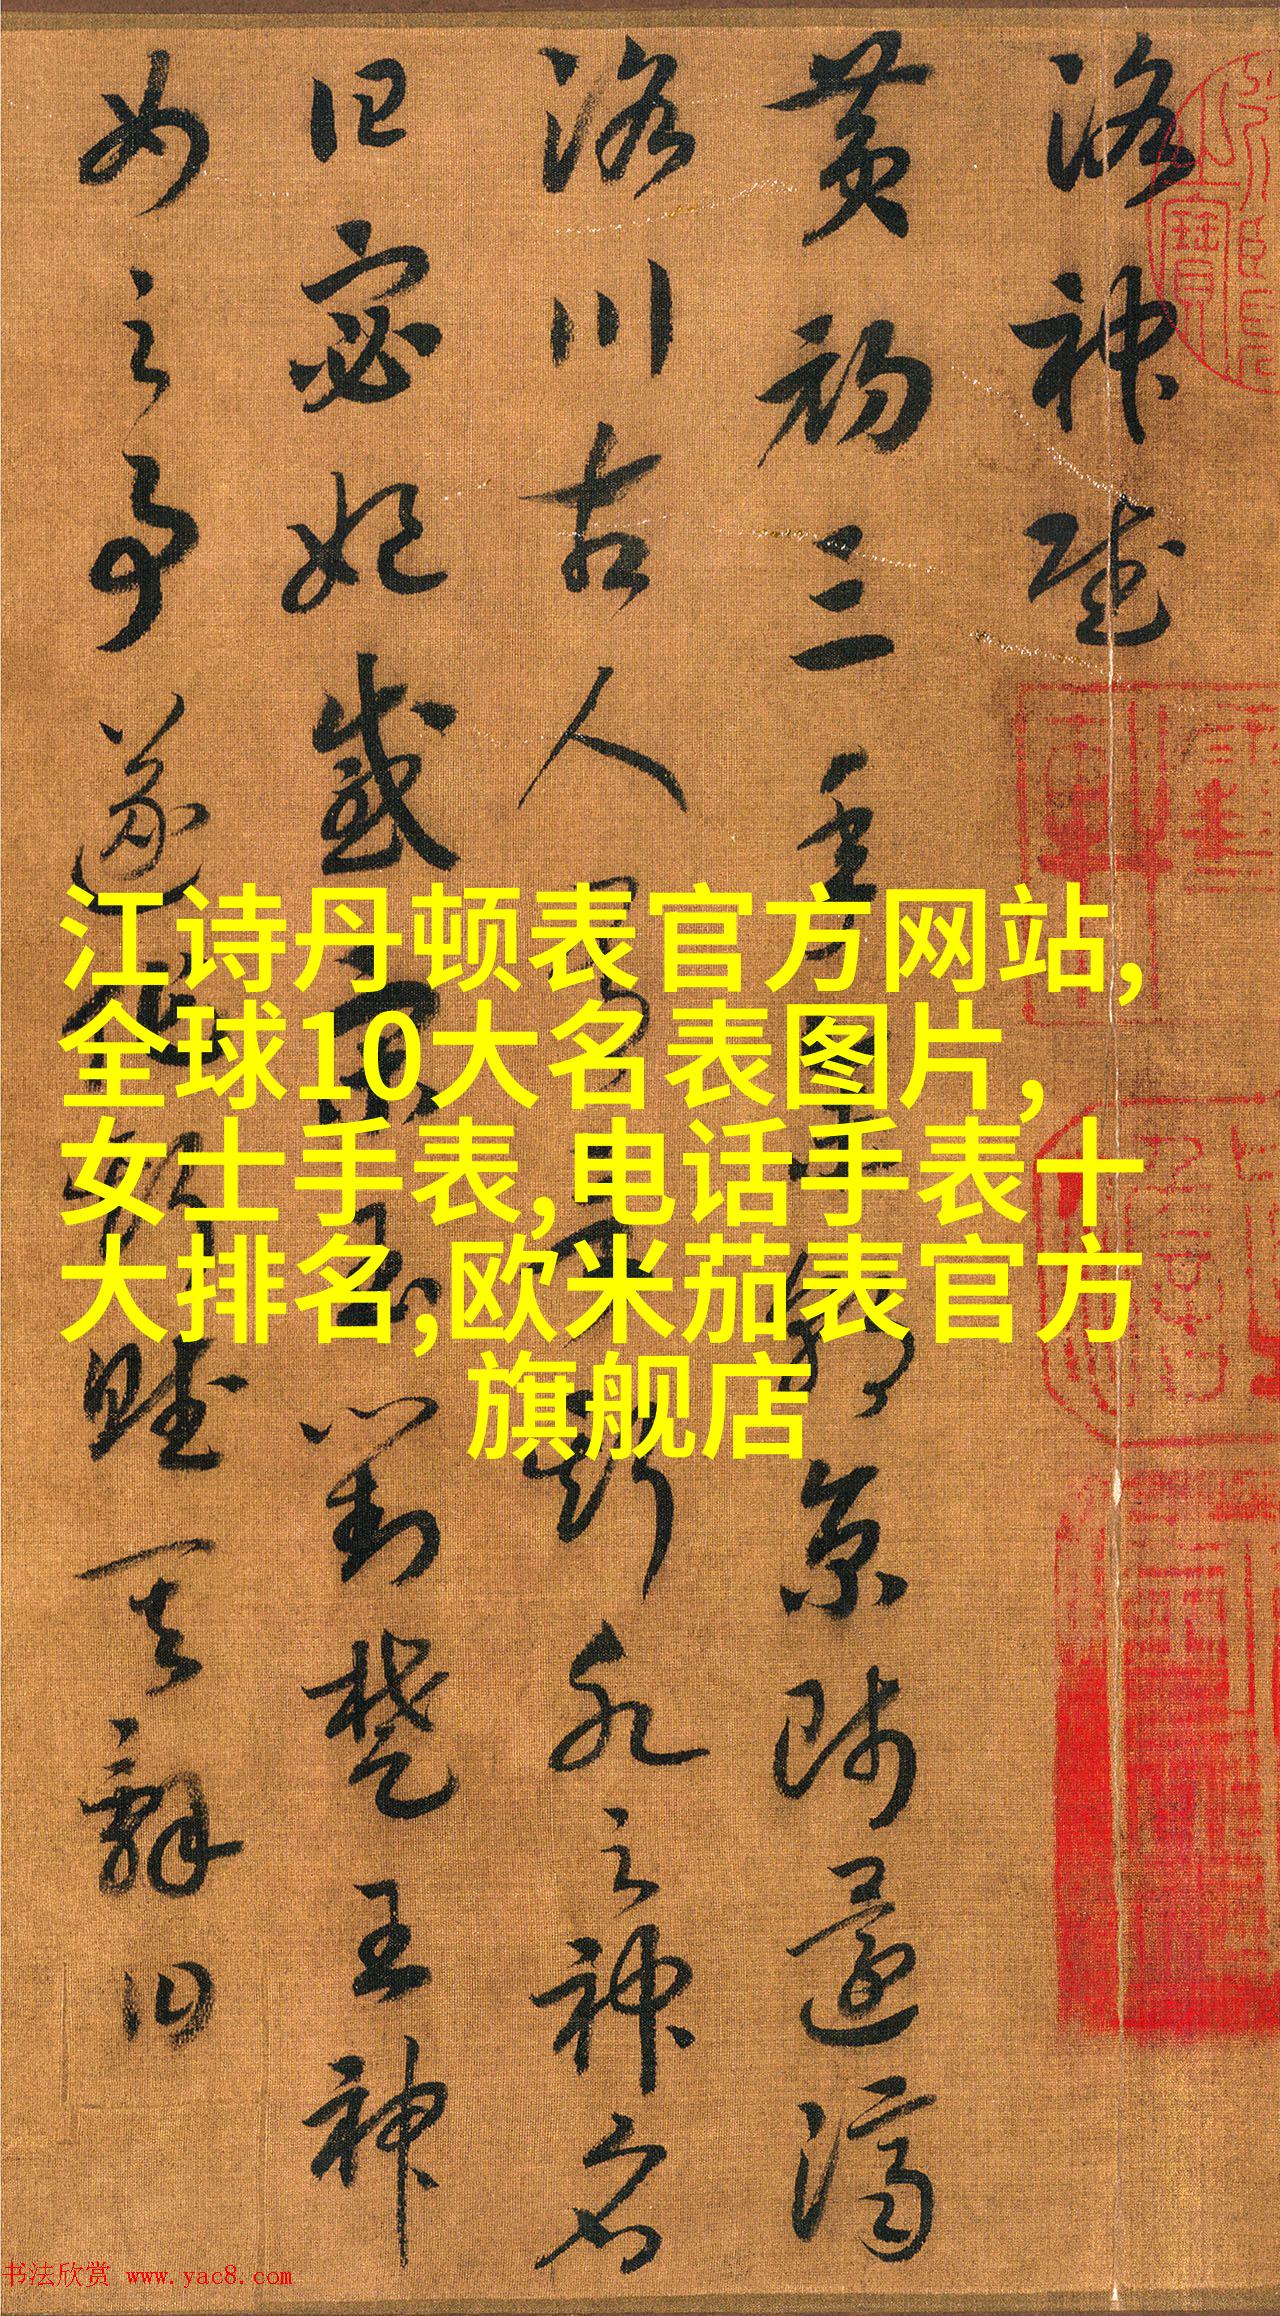 洛神賦
黄初三年
京師還濟
洛川古人
斯水之神名
曰宓妃感宋玉對楚王神
女之事遂作斯賦其辭曰
江诗丹顿表官方网站,
全球10大名表图片,
女士手表,电话手表十
大排名,欧米茄表官方
旗舰店
书法欣赏 www.yac8.com